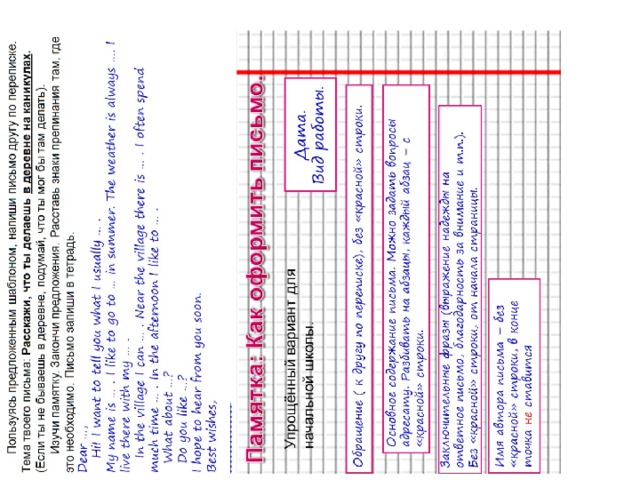 Пользуясь предложенным шаблоном, напиши письмо другу по переписке.
Тема твоего письма: Расскажи, что ты делаешь в деревне на каникулах.
(Если ты не бываешь в деревне, подумай, что ты мог бы там делать).
Изучи памятку. Закончи предложения. Расставь знаки препинания там, где
это необходимо. Письмо запиши в тетрадь.
Dear ...,
Hi! I want to tell you what I usually ... .
My name is ... . I like to go to ... in summer. The weather is always .... I
live there with my ... .
In the village I can .... Near the village there is ... . I often spend
much time ... . In the afternoon I like to ... .
What about ...?
Do you like ...?
I hope to hear from you soon.
Best wishes,
Памятка: Как оформить письмо.
Упрощённый вариант для
начальной школы.
Дата.
Вид работы.
Обращение ( к другу по переписке), без «красной» строки.
Основное содержание письма. Можно задать вопросы
адресату. Разбивать на абзацы, каждый абзац – с
«красной» строки.
Заключительные фразы (выражение надежды на
ответное письмо, благодарность за внимание и т.п.).
Без «красной» строки, от начала страницы.
Имя автора письма – без
«красной» строки, в конце
точка не ставится